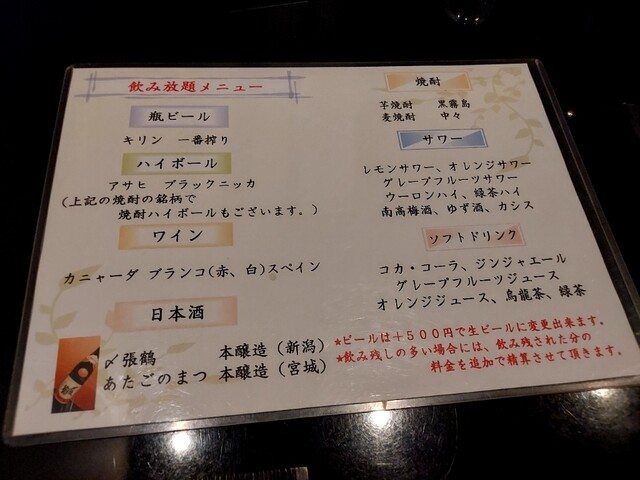 飲み放題メニュー
瓶ビール
キリン 一番搾り
ハイボール
アサヒ ブラックニッカ
(上記の焼酎の銘柄で
焼酎ハイボールもございます。)
ワイン
カニャーダ ブランコ(赤、白)スペイン
日本酒
〆張鶴 本醸造(新潟)
あたごのまつ 本醸造(宮城)
焼酎
芋焼酎 黒霧島
麦焼酎 中々
サワー
レモンサワー、オレンジサワー
グレープフルーツサワー
ウーロンハイ、緑茶ハイ
南高梅酒、ゆず酒、カシス
ソフトドリンク
コカ・コーラ、ジンジャエール
グレープフルーツジュース
オレンジジュース、烏龍茶、緑茶
★ビールは+500円で生ビールに変更出来ます。
★飲み残しの多い場合には、飲み残された分の
料金を追加で精算させて頂きます。